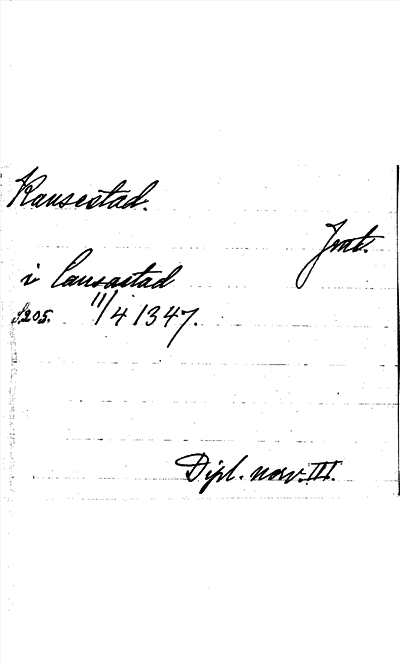 Kausestad.
Jmt.
i Causastad
S. 205. 11/4 1347.
Dipl. norv. III.